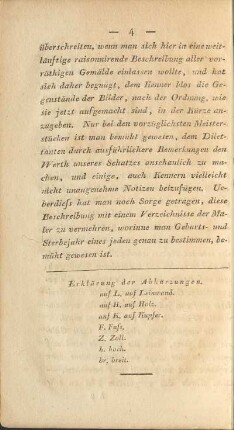 — 4 —
überschreiten, wenn man sich hier in eine weit-
läuftige raisonnirende Beschreibung aller vor-
räthigen Gemälde einlassen wollte, und hat
sich daher begnügt, dem Kenner blos die Ge-
genstände der Bilder, nach der Ordnung, wie
sie jetzt aufgemacht sind, in der Kürze an-
zugeben. Nur bei den vorzüglichsten Meister-
stücken ist man bemüht gewesen, dem Dilet-
tanten durch ausführlichere Bemerkungen den
Werth unseres Schatzes anschaulich zu ma-
chen, und einige, auch Kennern vielleicht
nicht unangenehme Notizen beizufügen. Ue-
berdiefs hat man noch Sorge getragen, diese
Beschreibung mit einem Verzeichnisse der Ma-
ler zu vermehren, worinne man Geburts- und
Sterbejahr eines jeden genau zu bestimmen, be-
müht gewesen ist.
Erklärung der Abkürzungen.
auf L. auf Leinwand.
auf H. auf Holz.
auf K. auf Kupfer.
F. Fufs.
Z. Zoll.
h. hoch.
br. breit.